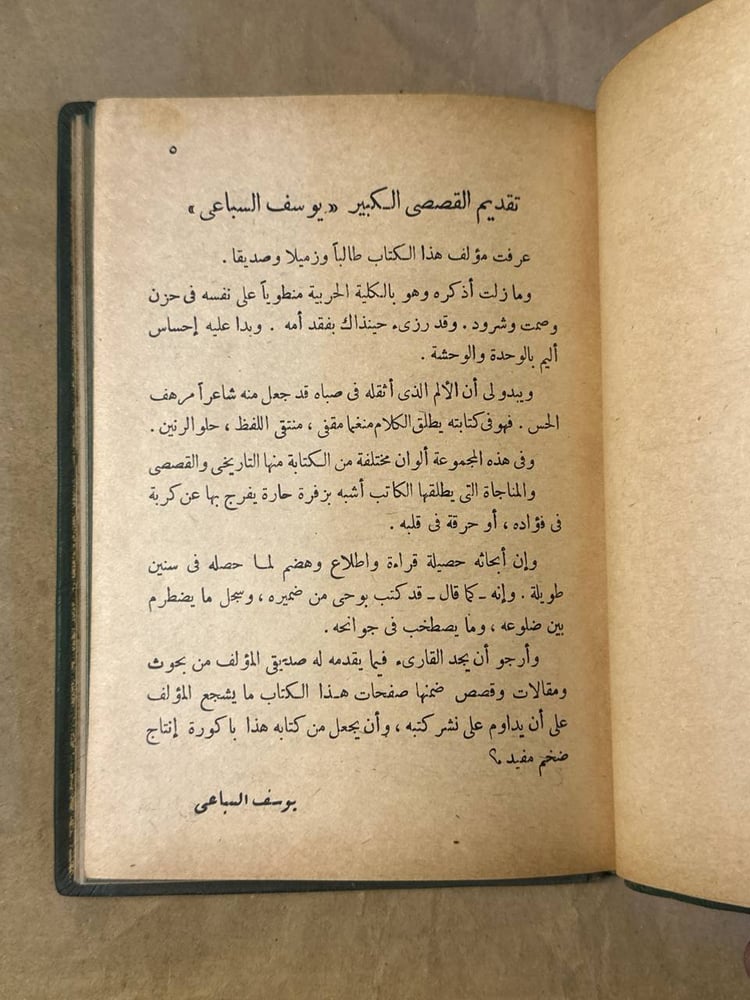 ٥
تقديم القصصى الكبير «يوسف السباعى»
عرفت مؤلف هذا الكتاب طالباً وزميلا وصديقا .
وما زلت أذكره وهو بالكلية الحربية منطوياً على نفسه فى حزن
وصمت وشرود . وقد رزىء حينذاك بفقد أمه . وبدا عليه إحساس
أليم بالوحدة والوحشة .
ويبدو لى أن الألم الذى أثقله فى صباه قد جعل منه شاعراً مرهف
الحس . فهو فى كتابته يطلق الكلام منغما مقفى ، منتقى اللفظ ، حلو الرنين .
وفى هذه المجموعة ألوان مختلفة من الكتابة منها التاريخى والقصصى
والمناجاة التى يطلقها الكاتب أشبه بزفرة حارة يفرج بها عن كربة
فى فؤاده ، أو حرقة فى قلبه .
وإن أبحاثه حصيلة قراءة واطلاع وهضم لما حصله فى سنين
طويلة . وإنه ـ كما قال ـ قد كتب بوحى من ضميره ، وسجل ما يضطرم
بين ضلوعه ، وما يصطخب فى جوانحه .
وأرجو أن يجد القارىء فيما يقدمه له صديقى المؤلف من بحوث
ومقالات وقصص ضمنها صفحات هذا الكتاب ما يشجع المؤلف
على أن يداوم على نشر كتبه ، وأن يجعل من كتابه هذا باكورة إنتاج
ضخم مفيد .؟
يوسف السباعى